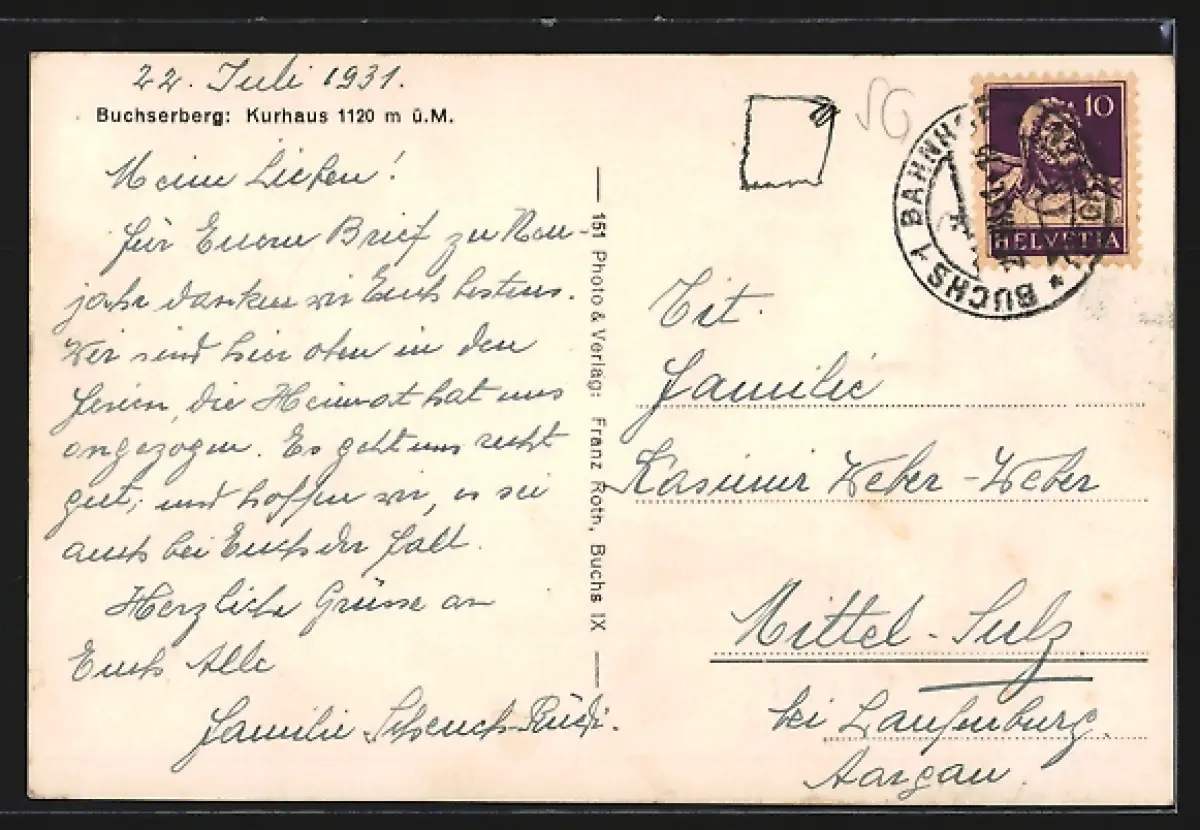 22. Juli 1931.
Buchserberg: Kurhaus 1120 m ü.M.
Meine Lieben!
für Euern Brief zu Neu-
jahr danken wir Euch bestens.
Wir sind hier oben in den
Ferien, die Heimat hat uns
angezogen. Es geht uns recht
gut; und hoffen wir, es sei
auch bei Euch der Fall.
Herzliche Grüsse an
Euch Alle
Familie Schenck-Rüdi.
151 Photo & Verlag: Franz Roth, Buchs IX
SG
10
HELVETIA
BUCHS 1 BAHNHOF
Tit.
Familie
Kasimir Weber-Weber
Mittel-Sulz
bei Laufenburg.
Aargau.